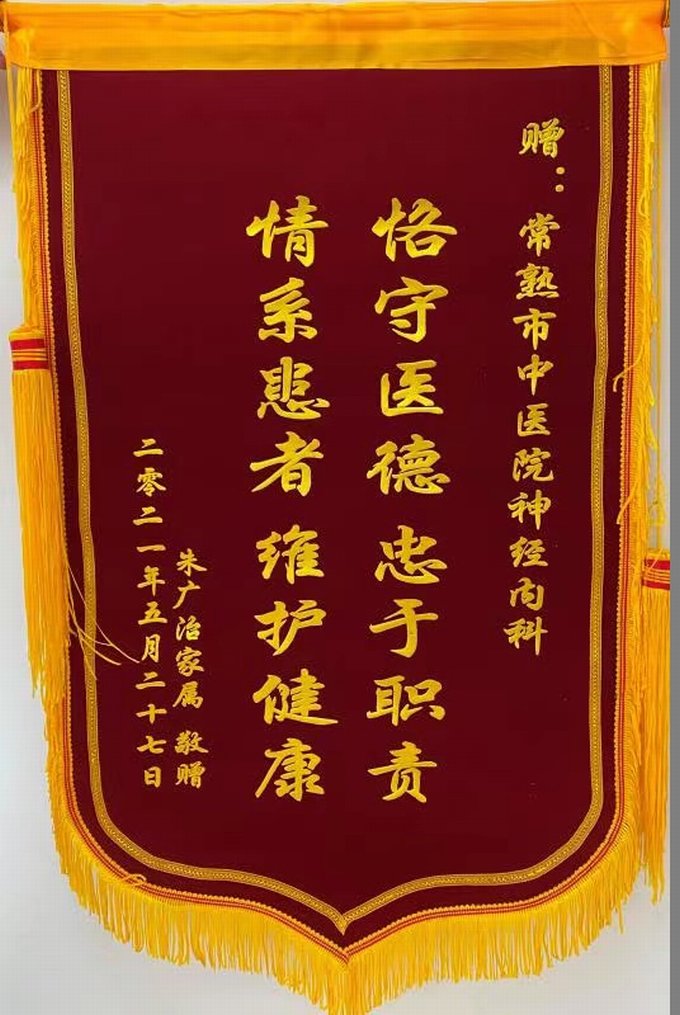 赠：常熟市中医院神经内科
恪守医德 忠于职责
情系患者 维护健康
朱广治家属 敬赠
二零二一年五月二十七日